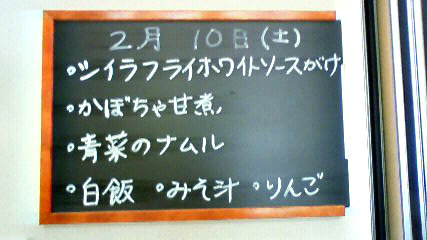 2月 10日(土)
○シイラフライホワイトソースがけ
○かぼちゃ甘煮
○青菜のナムル
○白飯 ○みそ汁 ○りんご